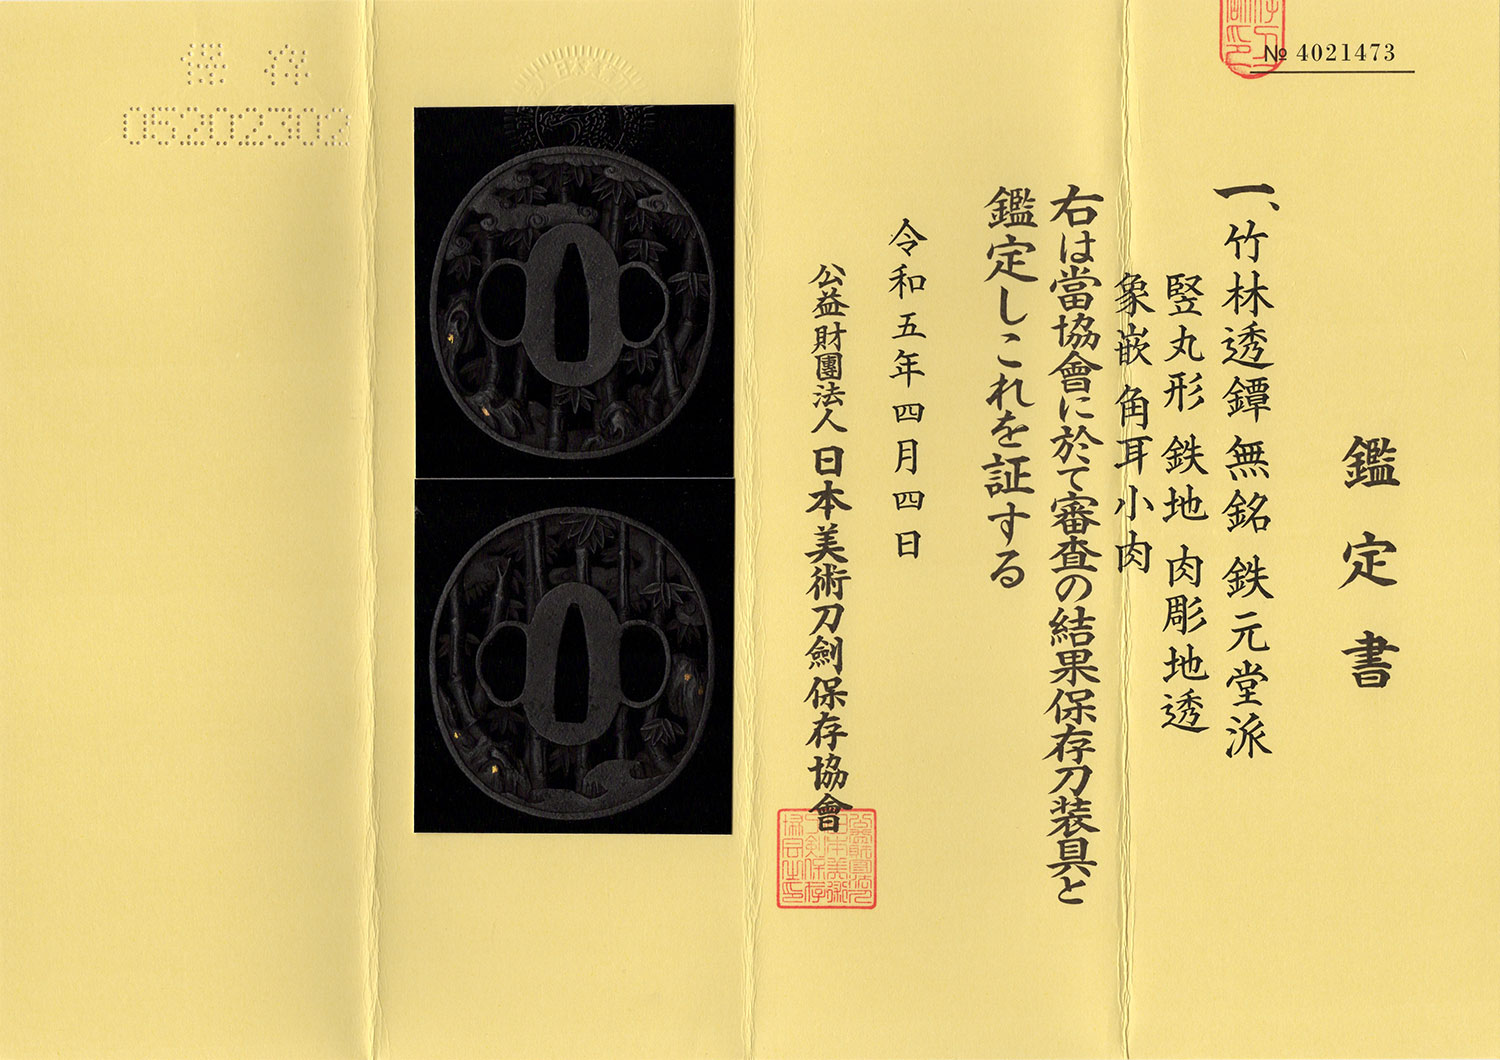 № 4021473
鑑定書
一、竹林透鐔 無銘 鉄元堂派
竪丸形 鉄地 肉彫地透
象嵌 角耳小肉
右は當協會に於て審査の結果保存刀装具と
鑑定しこれを証する
令和五年四月四日
公益財團法人 日本美術刀劍保存協會
保存
05202302